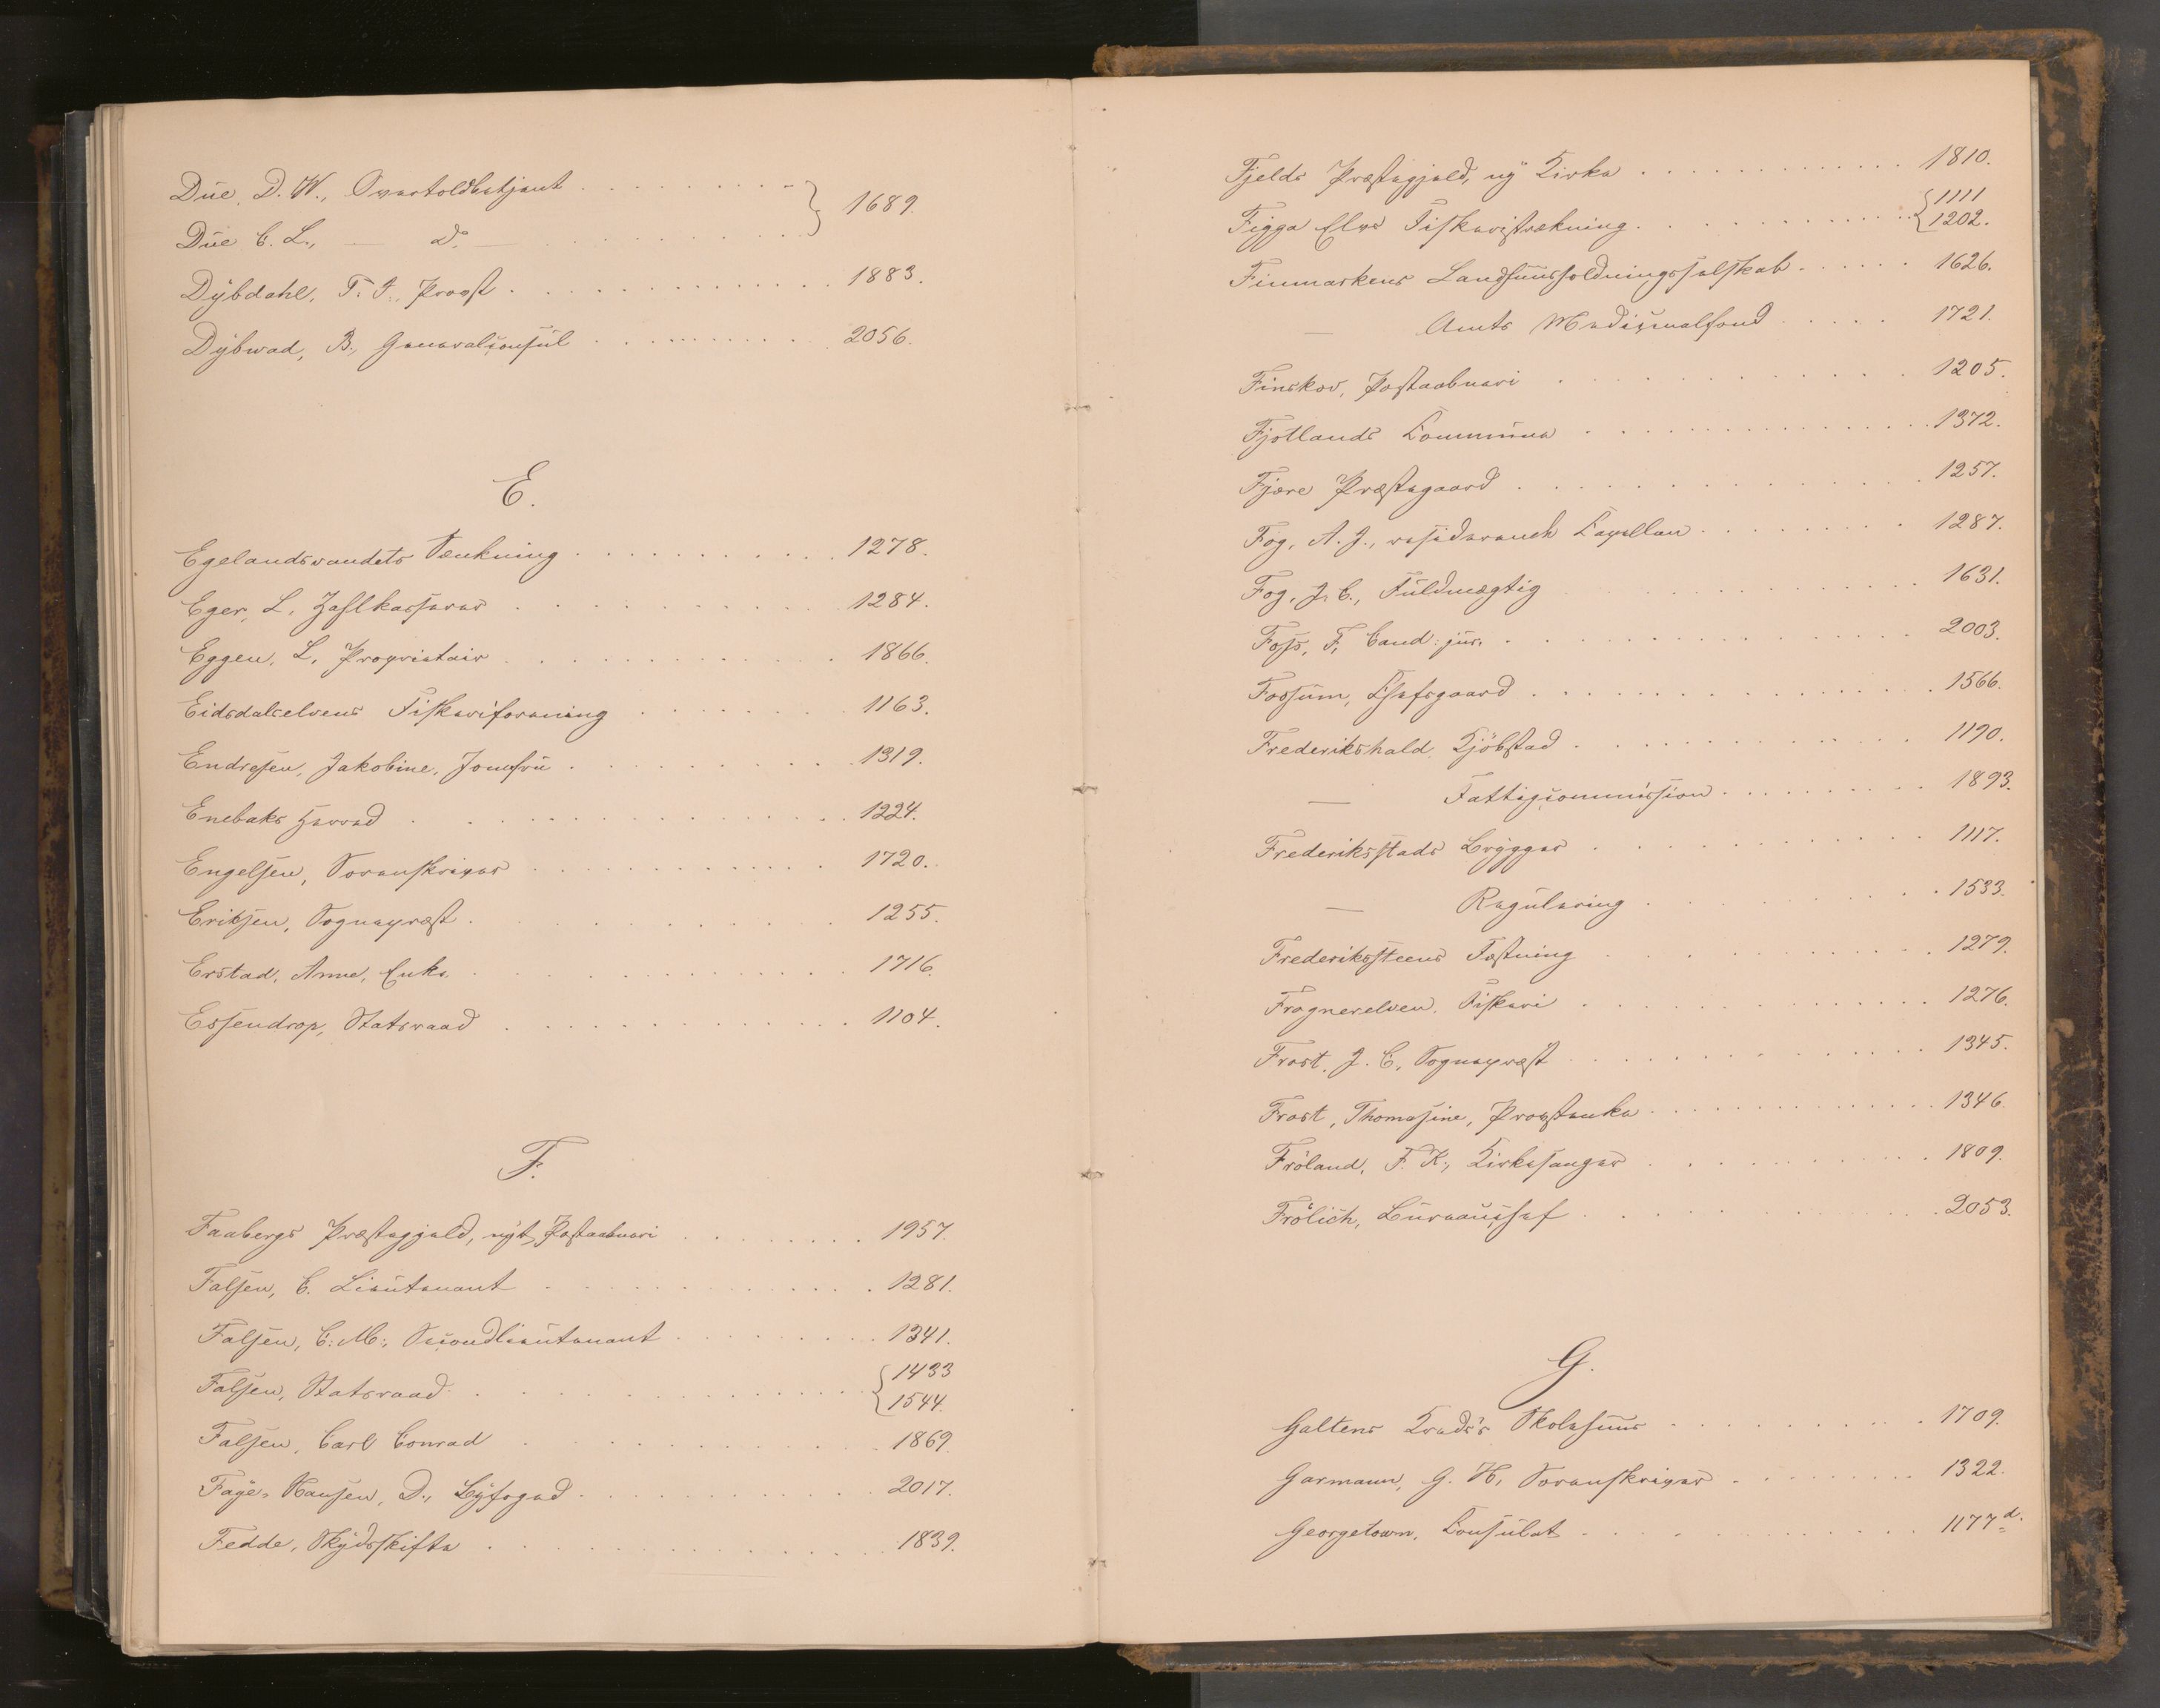 Due, D. W., Overtoldbetjent . . . . . . . . . } 1689.
Due C. L., — do. — . . . . . . . . .
Dybdahl, T. J., Provst . . . . . . . . . . . . 1883.
Dybwad, B., Generalconsul . . . . . . . . . . 2056.
E.
Egelandsvandets Sænkning . . . . . . . . . . 1278.
Eger, L., Zahlkasserer . . . . . . . . . . . 1284.
Eggen, L., Proprietair . . . . . . . . . . . 1866.
Eidsdalselvens Fiskeriforening . . . . . . . 1163.
Endresen, Jakobine, Jomfru . . . . . . . . . 1319.
Enebaks Herred . . . . . . . . . . . . . . . 1224.
Engelsen, Sorenskriver . . . . . . . . . . . 1720.
Eriksen, Sognepræst . . . . . . . . . . . . 1255.
Erstad, Anne, Enke . . . . . . . . . . . . . 1716.
Essendrop, Statsraad . . . . . . . . . . . . 1104.
F.
Faabergs Præstegjeld, nyt Postaabneri . . . . 1957.
Falsen, E. Lieutenant . . . . . . . . . . . . 1281.
Falsen, C. M., Secondlieutenant . . . . . . . 1341.
Falsen, Statsraad . . . . . . . . . . . . . { 1433
1544.
Falsen, Carl Conrad . . . . . . . . . . . . 1869.
Faye-Hansen, D., Byfoged . . . . . . . . . . 2017.
Fedde, Skydsskifte . . . . . . . . . . . . . 1839.
Fjelds Præstegjeld, ny Kirke . . . . . . . . 1810.
Figga Elvs Fiskeristrækning . . . . . . . . { 1111
1202.
Finmarkens Landhuusholdningsselskab . . . . . 1626.
— Amts Medicinalfond . . . . . 1721.
Finskov, Postaabneri . . . . . . . . . . . . 1205.
Fjotlands Commune . . . . . . . . . . . . . 1372.
Fjære Præstegaard . . . . . . . . . . . . . 1257.
Fog, A. J., residerende Capellan . . . . . . 1287.
Fog, J. C., Fuldmægtig . . . . . . . . . . . 1631.
Foss, F., Cand: jur. . . . . . . . . . . . . 2003.
Fossum, Chefsgaard . . . . . . . . . . . . . 1566.
Frederikshald Kjöbstad . . . . . . . . . . . 1190.
— Fattigcommission . . . . . . . . 1893.
Frederiksstads Brygger . . . . . . . . . . . 1117.
— Regulering . . . . . . . . . 1533.
Frederikssteens Fæstning . . . . . . . . . . 1279.
Frognerelven, Fiskeri . . . . . . . . . . . 1276.
Frost, J. C., Sognepræst . . . . . . . . . . 1345.
Frost, Thomasine, Provstenke . . . . . . . . 1346.
Fröland, F. K., Kirkesanger . . . . . . . . 1809.
Frölich, Bureauchef . . . . . . . . . . . . 2053.
G.
Galtens Kreds's Skolehuus . . . . . . . . . 1709.
Garmann, G. H., Sorenskriver . . . . . . . . 1322.
Georgetown, Consulat . . . . . . . . . . . . 1177 d.